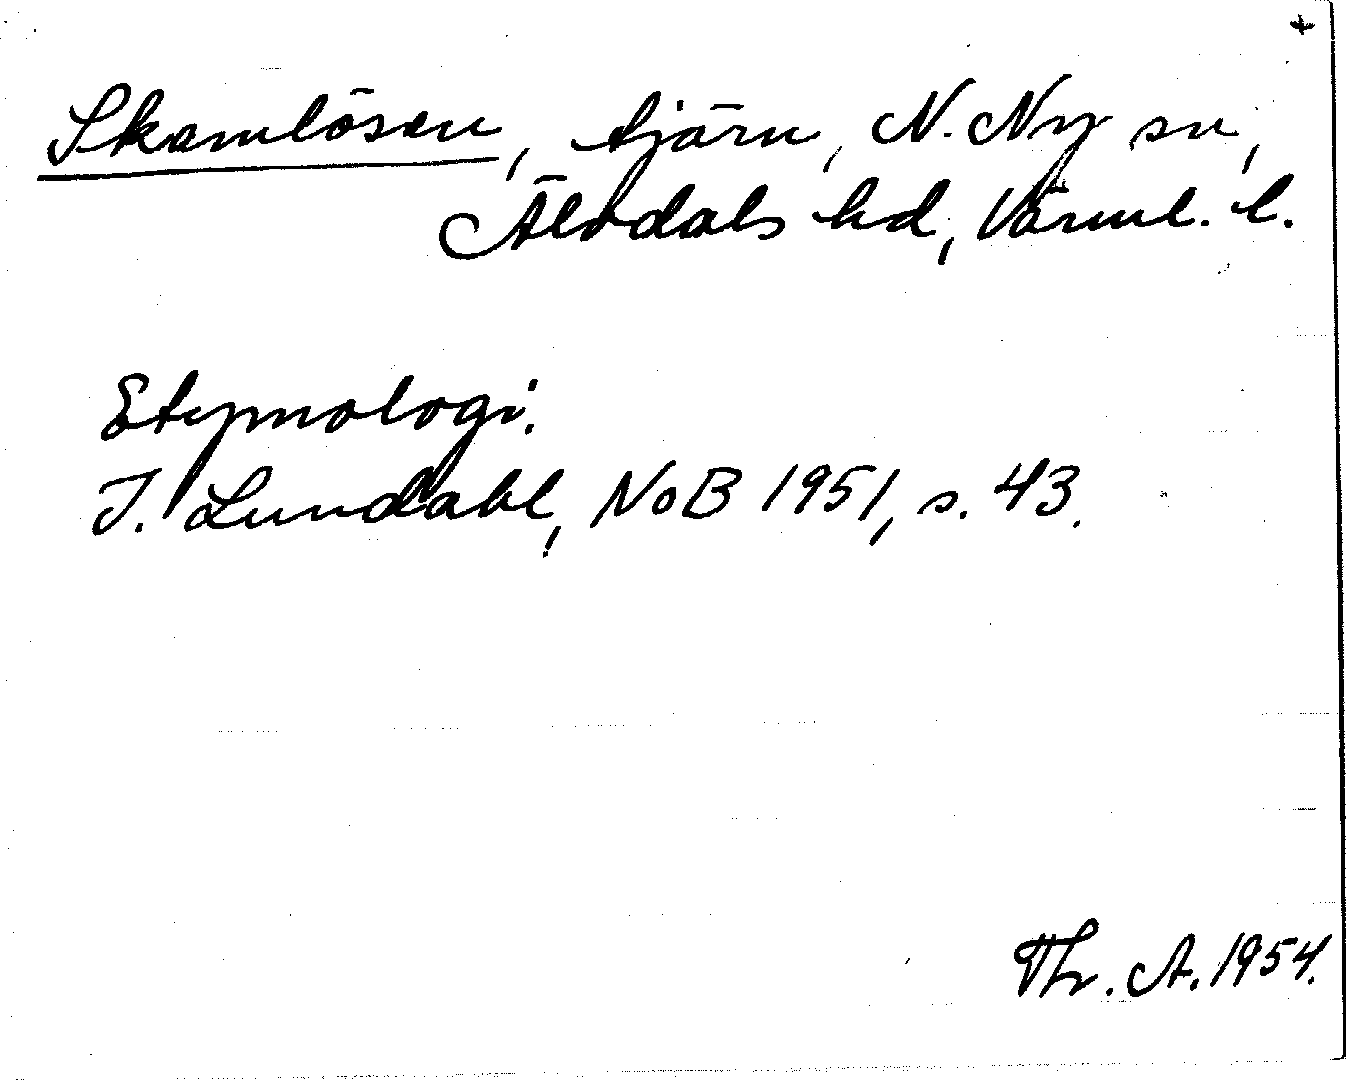 +
Skamlösen, tjärn, N. Ny sn,
Älvdals hd, Värml. l.
Etymologi.
I. Lundahl, NoB 1951, s. 43.
Th. A. 1954.